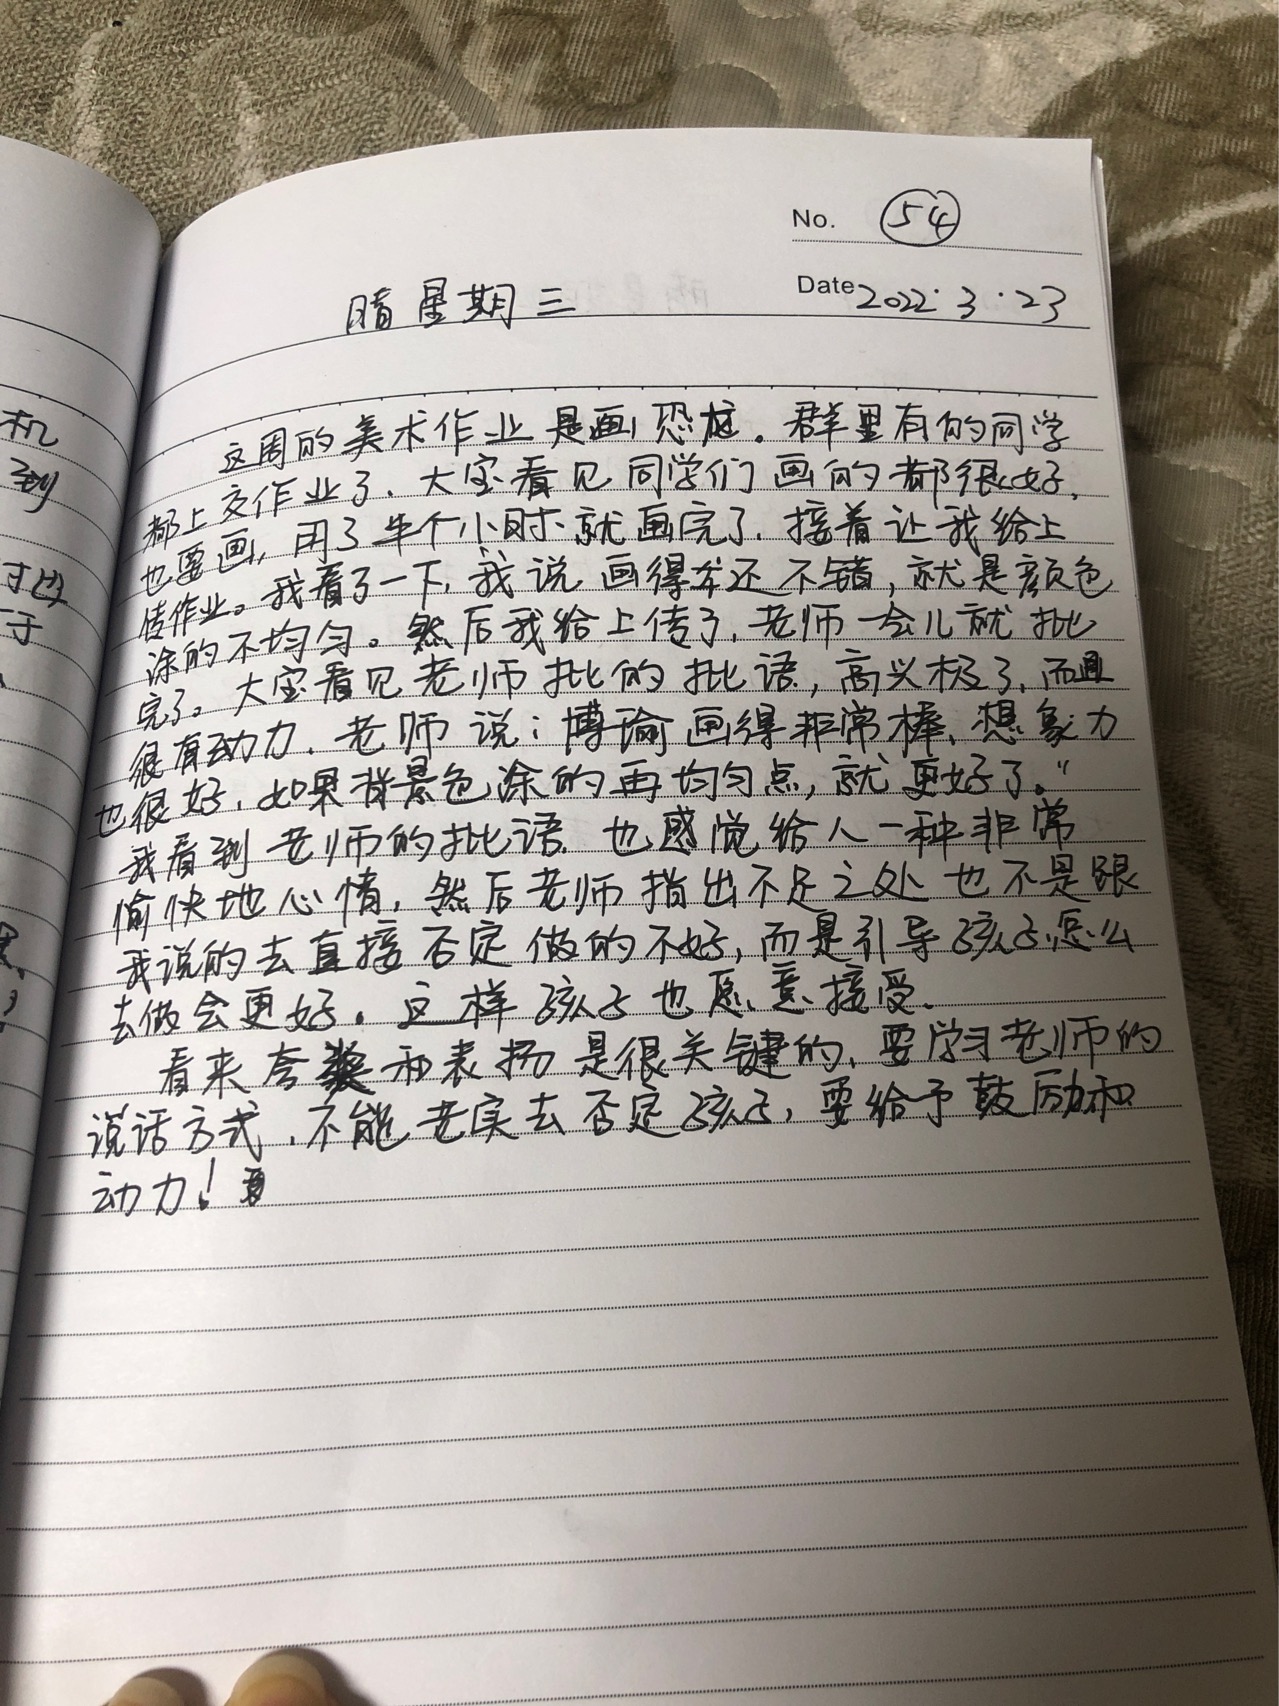 No. 54
Date 2022.3.23
晴 星期三
这周的美术作业是画恐龙。群里有的同学
都上交作业了、大宝看见同学们画的都很好,
也要画,用了半个小时就画完了、接着让我给上
传作业。我看了一下,我说画得还不错,就是颜色
涂的不均匀。然后我给上传了,老师一会儿就批
完了。大宝看见老师批的批语,高兴极了、而且
很有动力、老师说:博瑜画得非常棒、想象力
也很好、如果背景色涂的再均匀点,就更好了。"
我看到老师的批语、也感觉给人一种非常
愉快地心情,然后老师指出不足之处也不是跟
我说的去直接否定做的不好,而是引导孩子怎么
去做会更好。这样孩子也愿意接受、
看来夸奖和表扬是很关键的、要学习老师的
说话方式、不能老实去否定孩子,要给予鼓励和
动力!
机
到
于